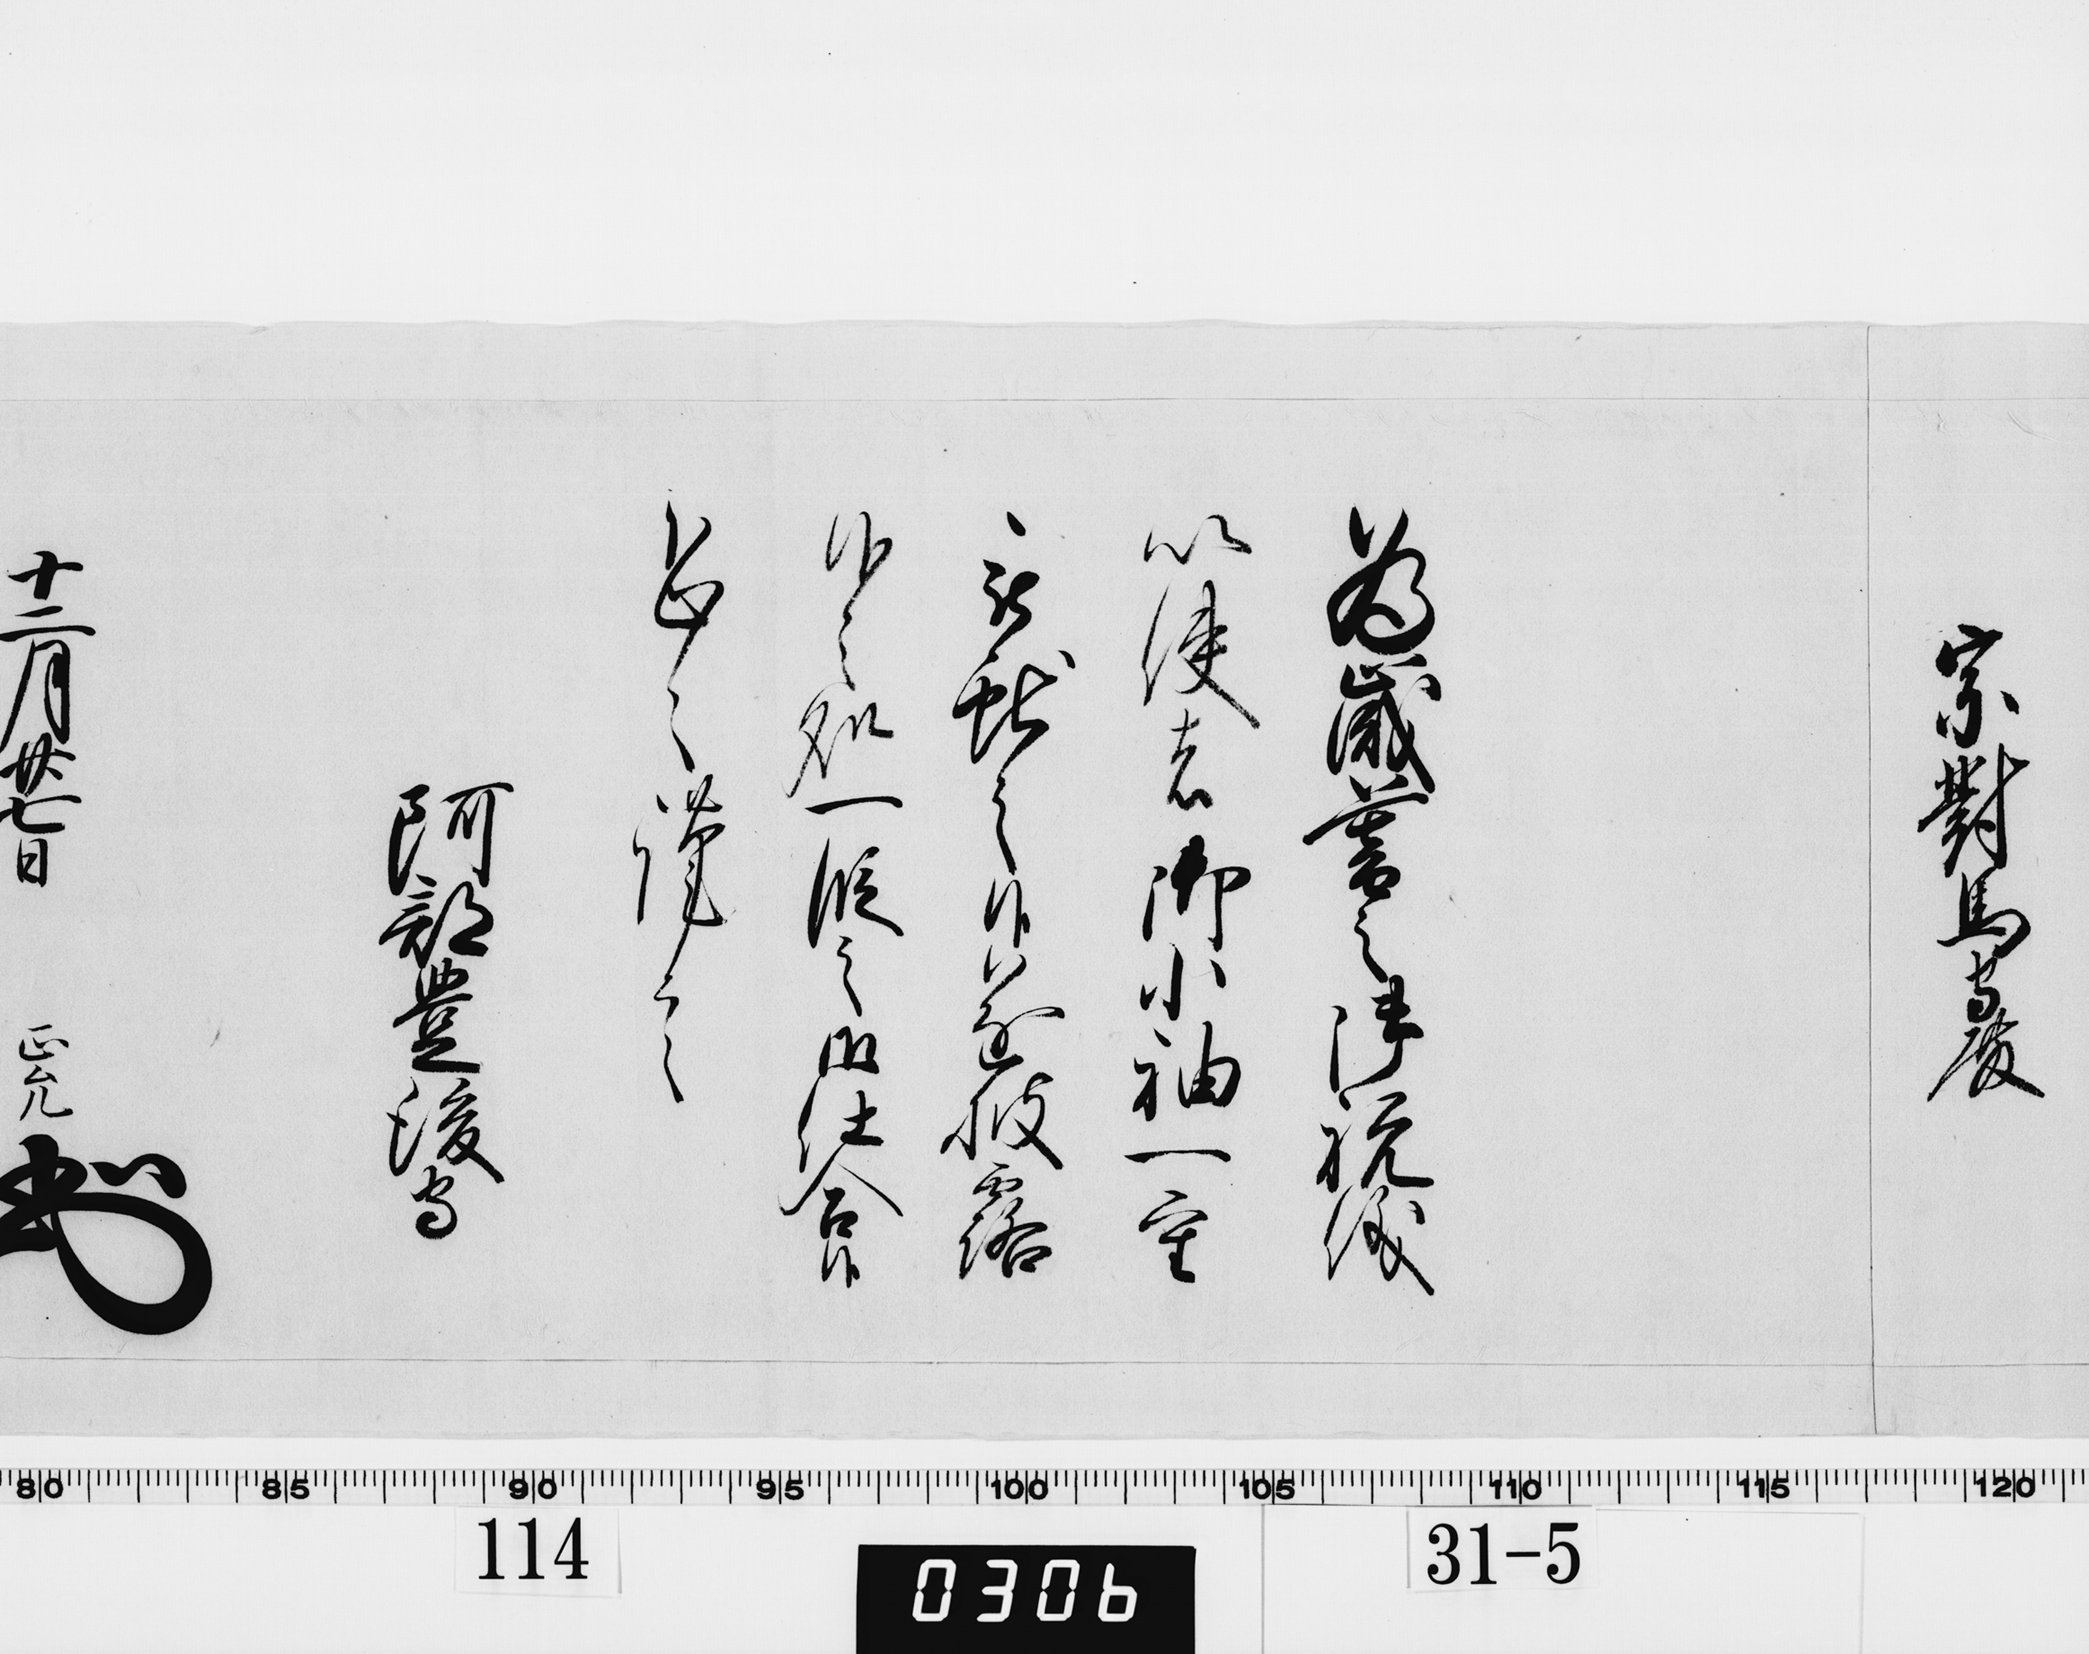 宗對馬守殿
為歳暮之御祝儀
以使者御小袖一重
被献之候遂披露
候之処一段之御仕合候
恐々謹言
阿部豊後守
十二月廿七日 正允
80 85 90 95 100 105 110 115 120
114
0306
31-5